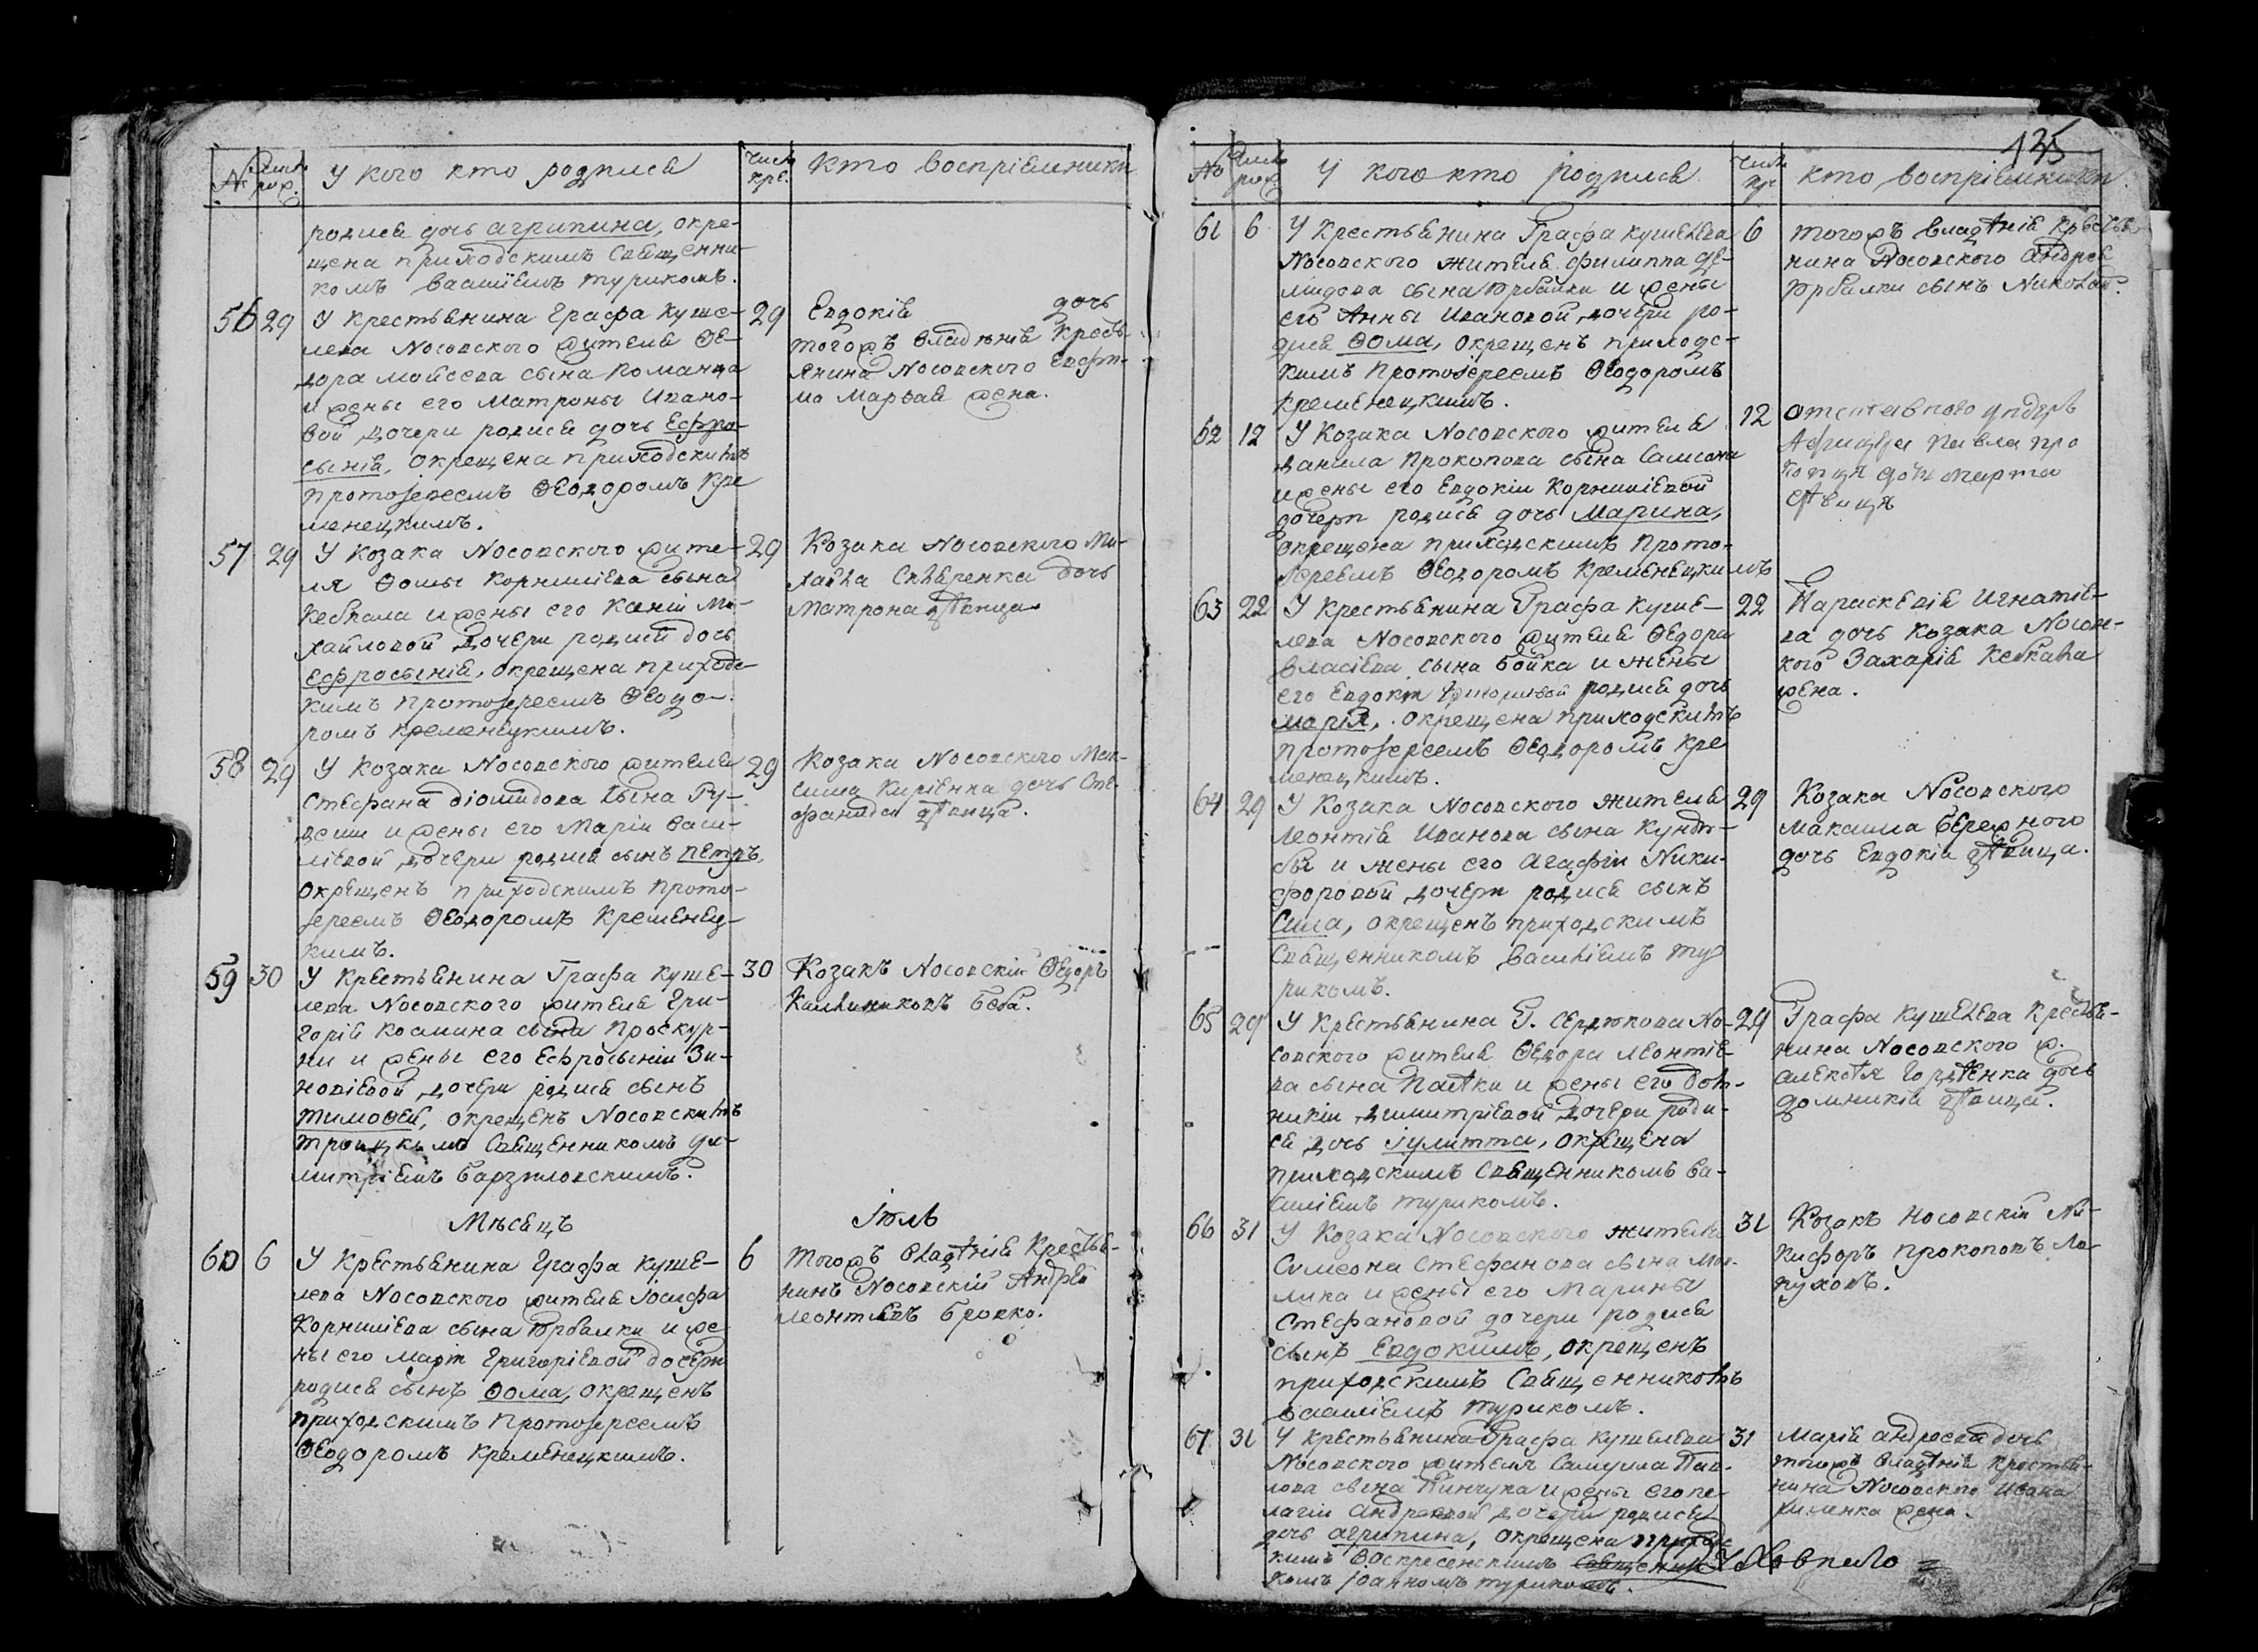 № Числ. рож. У кого кто родился Числ. кре. Кто воспріемники
родися дочь Агрипина, окре-
щена приходскимъ Священни-
комъ Василіемъ Турикомъ.
56 29 У Крестьянина Графа Куше- 29
лева Носовского жителя Ѳе-
дора Мойсеева сына Команца
и жены его Матроны Ивано-
вой дочери родися дочь Ефро-
сынія, окрещена приходскимъ
Протоіереемъ Ѳеодоромъ Кре
менецкимъ.
Евдокія дочь
тогожъ владѣнія Кресть-
янина Носовского
жена.
57 29 У Козака Носовского жите- 29
ля Ѳомы Корниліева сына
Кебкала и жены его Ксеніи Ми-
хайловой дочери родися дочь
Ефросынія, окрещена приходс-
кимъ Протоіереемъ Ѳеодо-
ромъ Кременецкимъ.
Козака Носовского Ми-
хайла дочь
Матрона дѣвица
58 29 У Козака Носовского жителя 29
Стефана Діомидова сына Гу-
и жены его Маріи Васи-
ліевой дочери родися сынъ Петръ,
окрещенъ приходскимъ Прото-
іереемъ Ѳеодоромъ Кременец-
кимъ.
Козака Носовского Мак-
сима Киріенка дочь Сте-
фанида дѣвица.
59 30 У Крестьянина Графа Куше- 30
лева Носовского жителя Гри-
горія Космина сына Проскур-
ни и жены его Ефросыніи Зи-
новіевой дочери родися сынъ
Тимоѳей, окрещенъ Носовскимъ
Троицкимъ Священникомъ Ди-
митріемъ Барзиловскимъ.
Козакъ Носовскій Ѳедоръ
Каллиниковъ Беба.
Мѣсяцъ Іюль
60 6 У Крестьянина Графа Куше- 6
лева Носовского жителя Іосифа
Корниліева сына Юрбалки и же
ны его Маріи Григоріевой дочери
родися сынъ Ѳома, окрещенъ
приходскимъ Протоіереемъ
Ѳеодоромъ Кременецкимъ.
тогожъ владѣнія Крестья-
нинъ Носовскій Андрей
Леонтіевъ Бровко.
135
№ Числ. рож. У кого кто родился Числ. кр. Кто воспріемники
61 6 У Крестьянина Графа Кушелева 6
Носовского жителя Филиппа Де-
мидова сына Юрбалки и жены
его Анны Ивановой дочери ро-
дися Ѳома, окрещенъ приходс-
кимъ Протоіереемъ Ѳеодоромъ
Кременецкимъ.
тогожъ владѣнія Кресть
нина Носовского Андрея
Юрбалки сынъ Николай.
62 12 У Козака Носовского жителя 12
Данила Прокопова сына Самсона
и жены его Евдокіи Корниліевой
дочери родися дочь Марина,
окрещена приходскимъ Прото-
іереемъ Ѳеодоромъ Кременецкимъ
отставного ундеръ
Афицера Павла Про
копця дочь Марта
дѣвиця
63 22 У Крестьянина Графа Куше- 22
лева Носовского жителя Ѳедора
Власіева сына Бойка и жены
его Евдокіи родися дочь
Марія, окрещена приходскимъ
Протоіереемъ Ѳеодоромъ Кре
менецкимъ.
Параскевія Игнатіе-
ва дочь Козака Носов-
кого Захарія Кебкала
жена.
64 29 У Козака Носовского жителя 29
Леонтія Иванова сына Кунди-
бы и жены его Агафіи Ники-
форовой дочери родися сынъ
Сила, окрещенъ приходскимъ
Священникомъ Василіемъ Ту
рикомъ.
Козака Носовского
Максима Бережного
дочь Евдокія дѣвица.
65 29 У Крестьянина Г. Сердюкова Но- 29
совского жителя Ѳедора Леонтіе-
ва сына и жены его Дом-
никіи Димитріевой дочери роди-
ся дочь Іулитта, окрещена
приходскимъ Священникомъ Ва-
силіемъ Турикомъ.
Графа Кушелева Крестья-
нина Носовского ж.
Алексѣя Гордѣенка дочь
Домникія дѣвица.
66 31 У Козака Носовского жителя 31
Симеона Стефанова сына
и жены его Марины
Стефановой дочери родися
сынъ Евдокимъ, окрещенъ
приходскимъ Священникомъ
Василіемъ Турикомъ.
Козакъ Носовскій Ни-
кифоръ Прокоповъ Ло-
пуховъ.
67 31 У Крестьянина Графа Кушелева 31
Носовского жителя Самуила Пав-
лова сына Пинчука и жены его Пе-
лагіи Андреевой дочери родися
дочь Агрипина, окрещена приходс
кимъ Воскресенскимъ Священни-
комъ Іоанномъ Турикомъ.
Марія Андреева дочь
тогожъ владѣнія Крестья-
нина Носовского Ивана
жена.